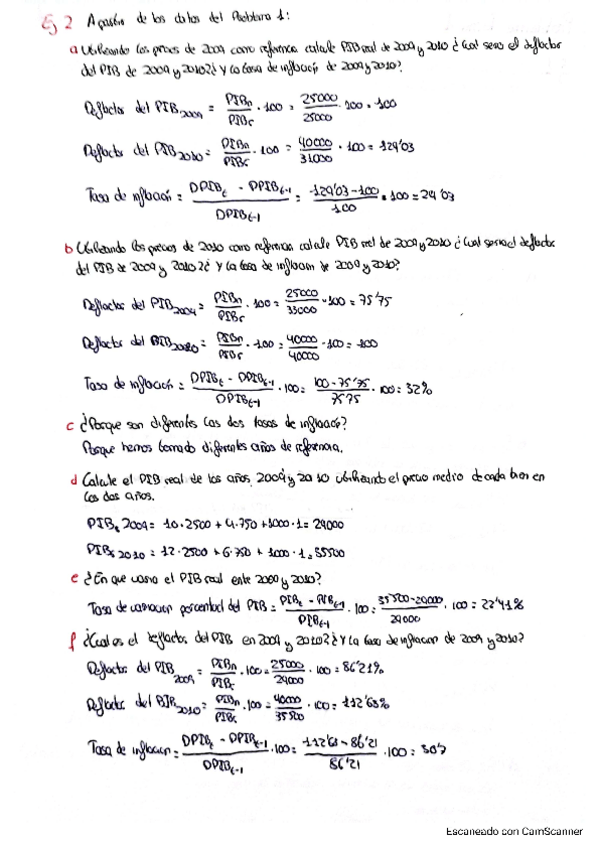 Ej 2 A partir de los datos del Problema 1:
a Utilizando los precios de 2009 como referencia calcule PIB real de 2009 y 2010 ¿Cual sera el deflactor
del PIB de 2009 y 2010? ¿Y la tasa de inflación de 2009 y 2010?
Deflactor del PIB2009 = PIBn/PIBr · 100 = 25000/25000 · 100 = 100
Deflactor del PIB2010 = PIBn/PIBr · 100 = 40000/31000 · 100 = 129'03
Tasa de inflación = DPIBt - DPIBt-1/DPIBt-1 = 129'03-100/100 · 100 = 29'03
b Utilizando los precios de 2010 como referencia calcule PIB real de 2009 y 2010 ¿Cual seria el deflactor
del PIB de 2009 y 2010? ¿Y la tasa de inflación de 2009 y 2010?
Deflactor del PIB2009 = PIBn/PIBr · 100 = 25000/33000 · 100 = 75'75
Deflactor del PIB2010 = PIBn/PIBr · 100 = 40000/40000 · 100 = 100
Tasa de inflación = DPIBt - DPIBt-1/DPIBt-1 · 100 = 100-75'75/75'75 · 100 = 32%
c ¿Porque son diferentes las dos tasas de inflación?
Porque hemos tomado diferentes años de referencia.
d Calcule el PIB real de los años 2009 y 2010 utilizando el precio medio de cada bien en
los dos años.
PIBr 2009 = 10·2500 + 4·750 + 1000·1 = 29000
PIBr 2010 = 12·2500 + 6·750 + 1000·1 = 35500
e ¿En que varia el PIB real entre 2009 y 2010?
Tasa de variacion porcentual del PIB = PIBt - PIBt-1/PIBt-1 · 100 = 35500-29000/29000 · 100 = 22'41%
f ¿Cual es el deflactor del PIB en 2009 y 2010? ¿Y la tasa de inflacion de 2009 y 2010?
Deflactor del PIB2009 = PIBn/PIBr · 100 = 25000/29000 · 100 = 86'21%
Deflactor del PIB2010 = PIBn/PIBr · 100 = 40000/35500 · 100 = 112'68%
Tasa de inflación = DPIBt - DPIBt-1/DPIBt-1 · 100 = 112'68-86'21/86'21 · 100 = 30'7
Escaneado con CamScanner